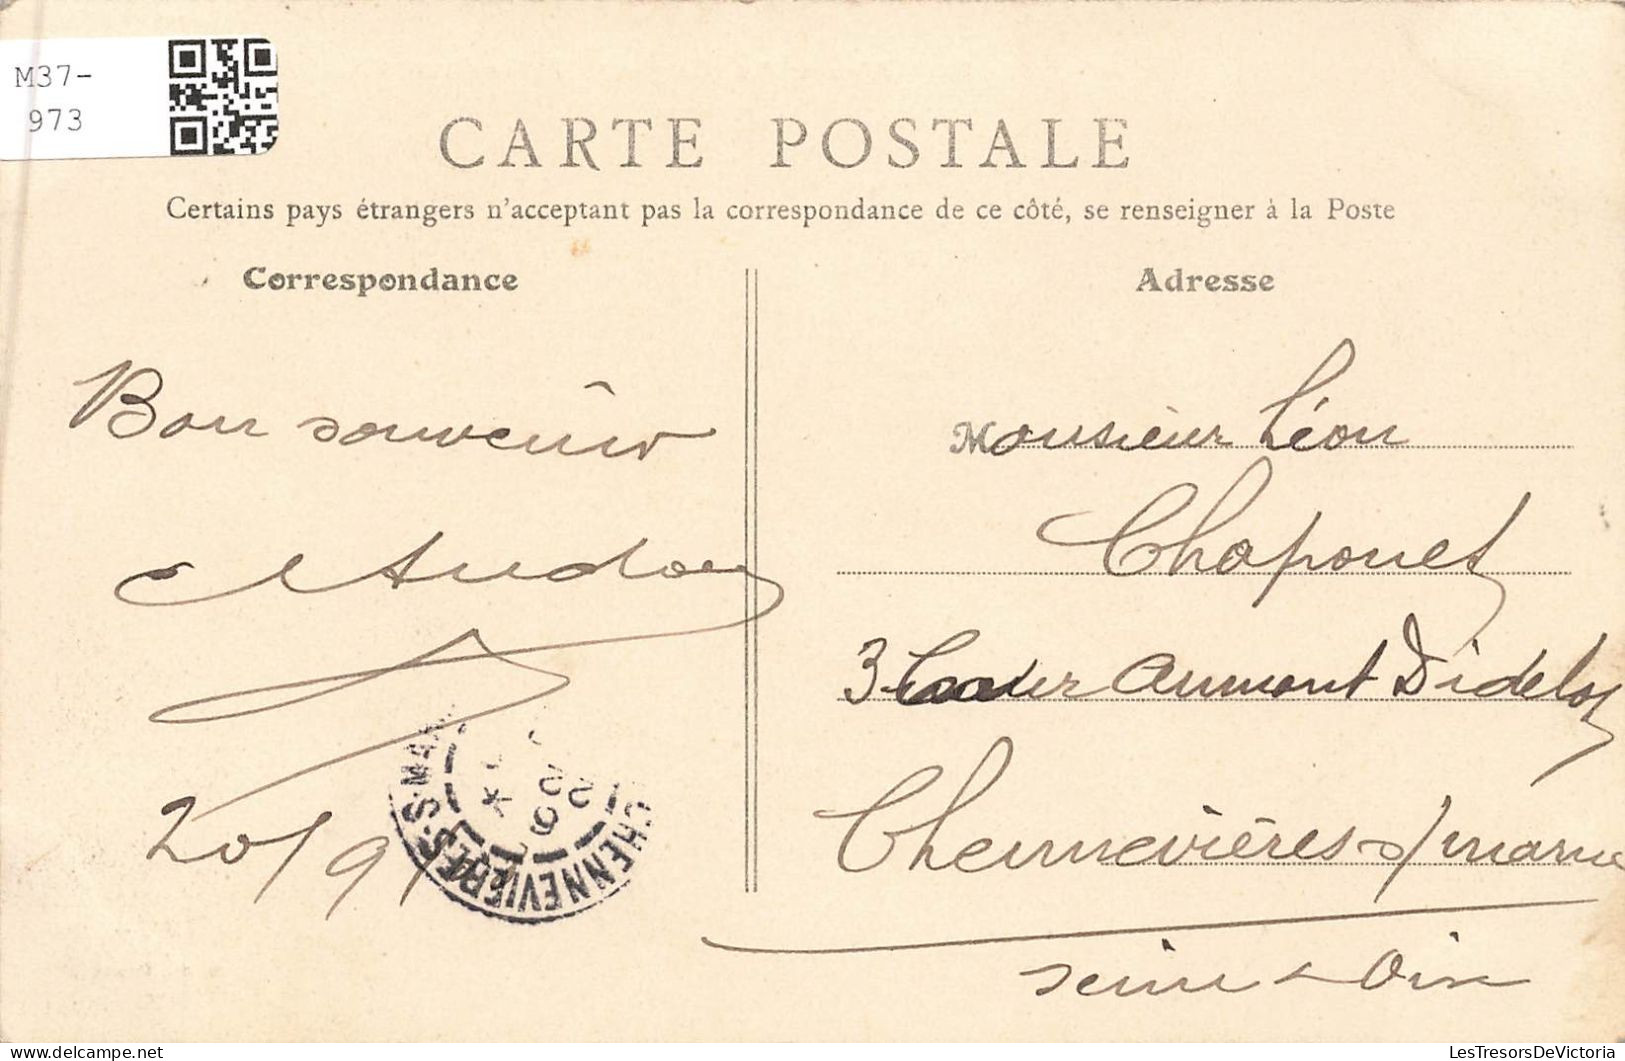 M37-
973
CARTE POSTALE
Certains pays étrangers n'acceptant pas la correspondance de ce côté, se renseigner à la Poste
Correspondance
Bon souvenir
20/9
CHENNEVIÈRES-S-MAR
Adresse
Monsieur Léon
Chaponet
3 Aumont Didelot
Chennevières s/marne
Seine & Oise
LesTresorsDeVictoria